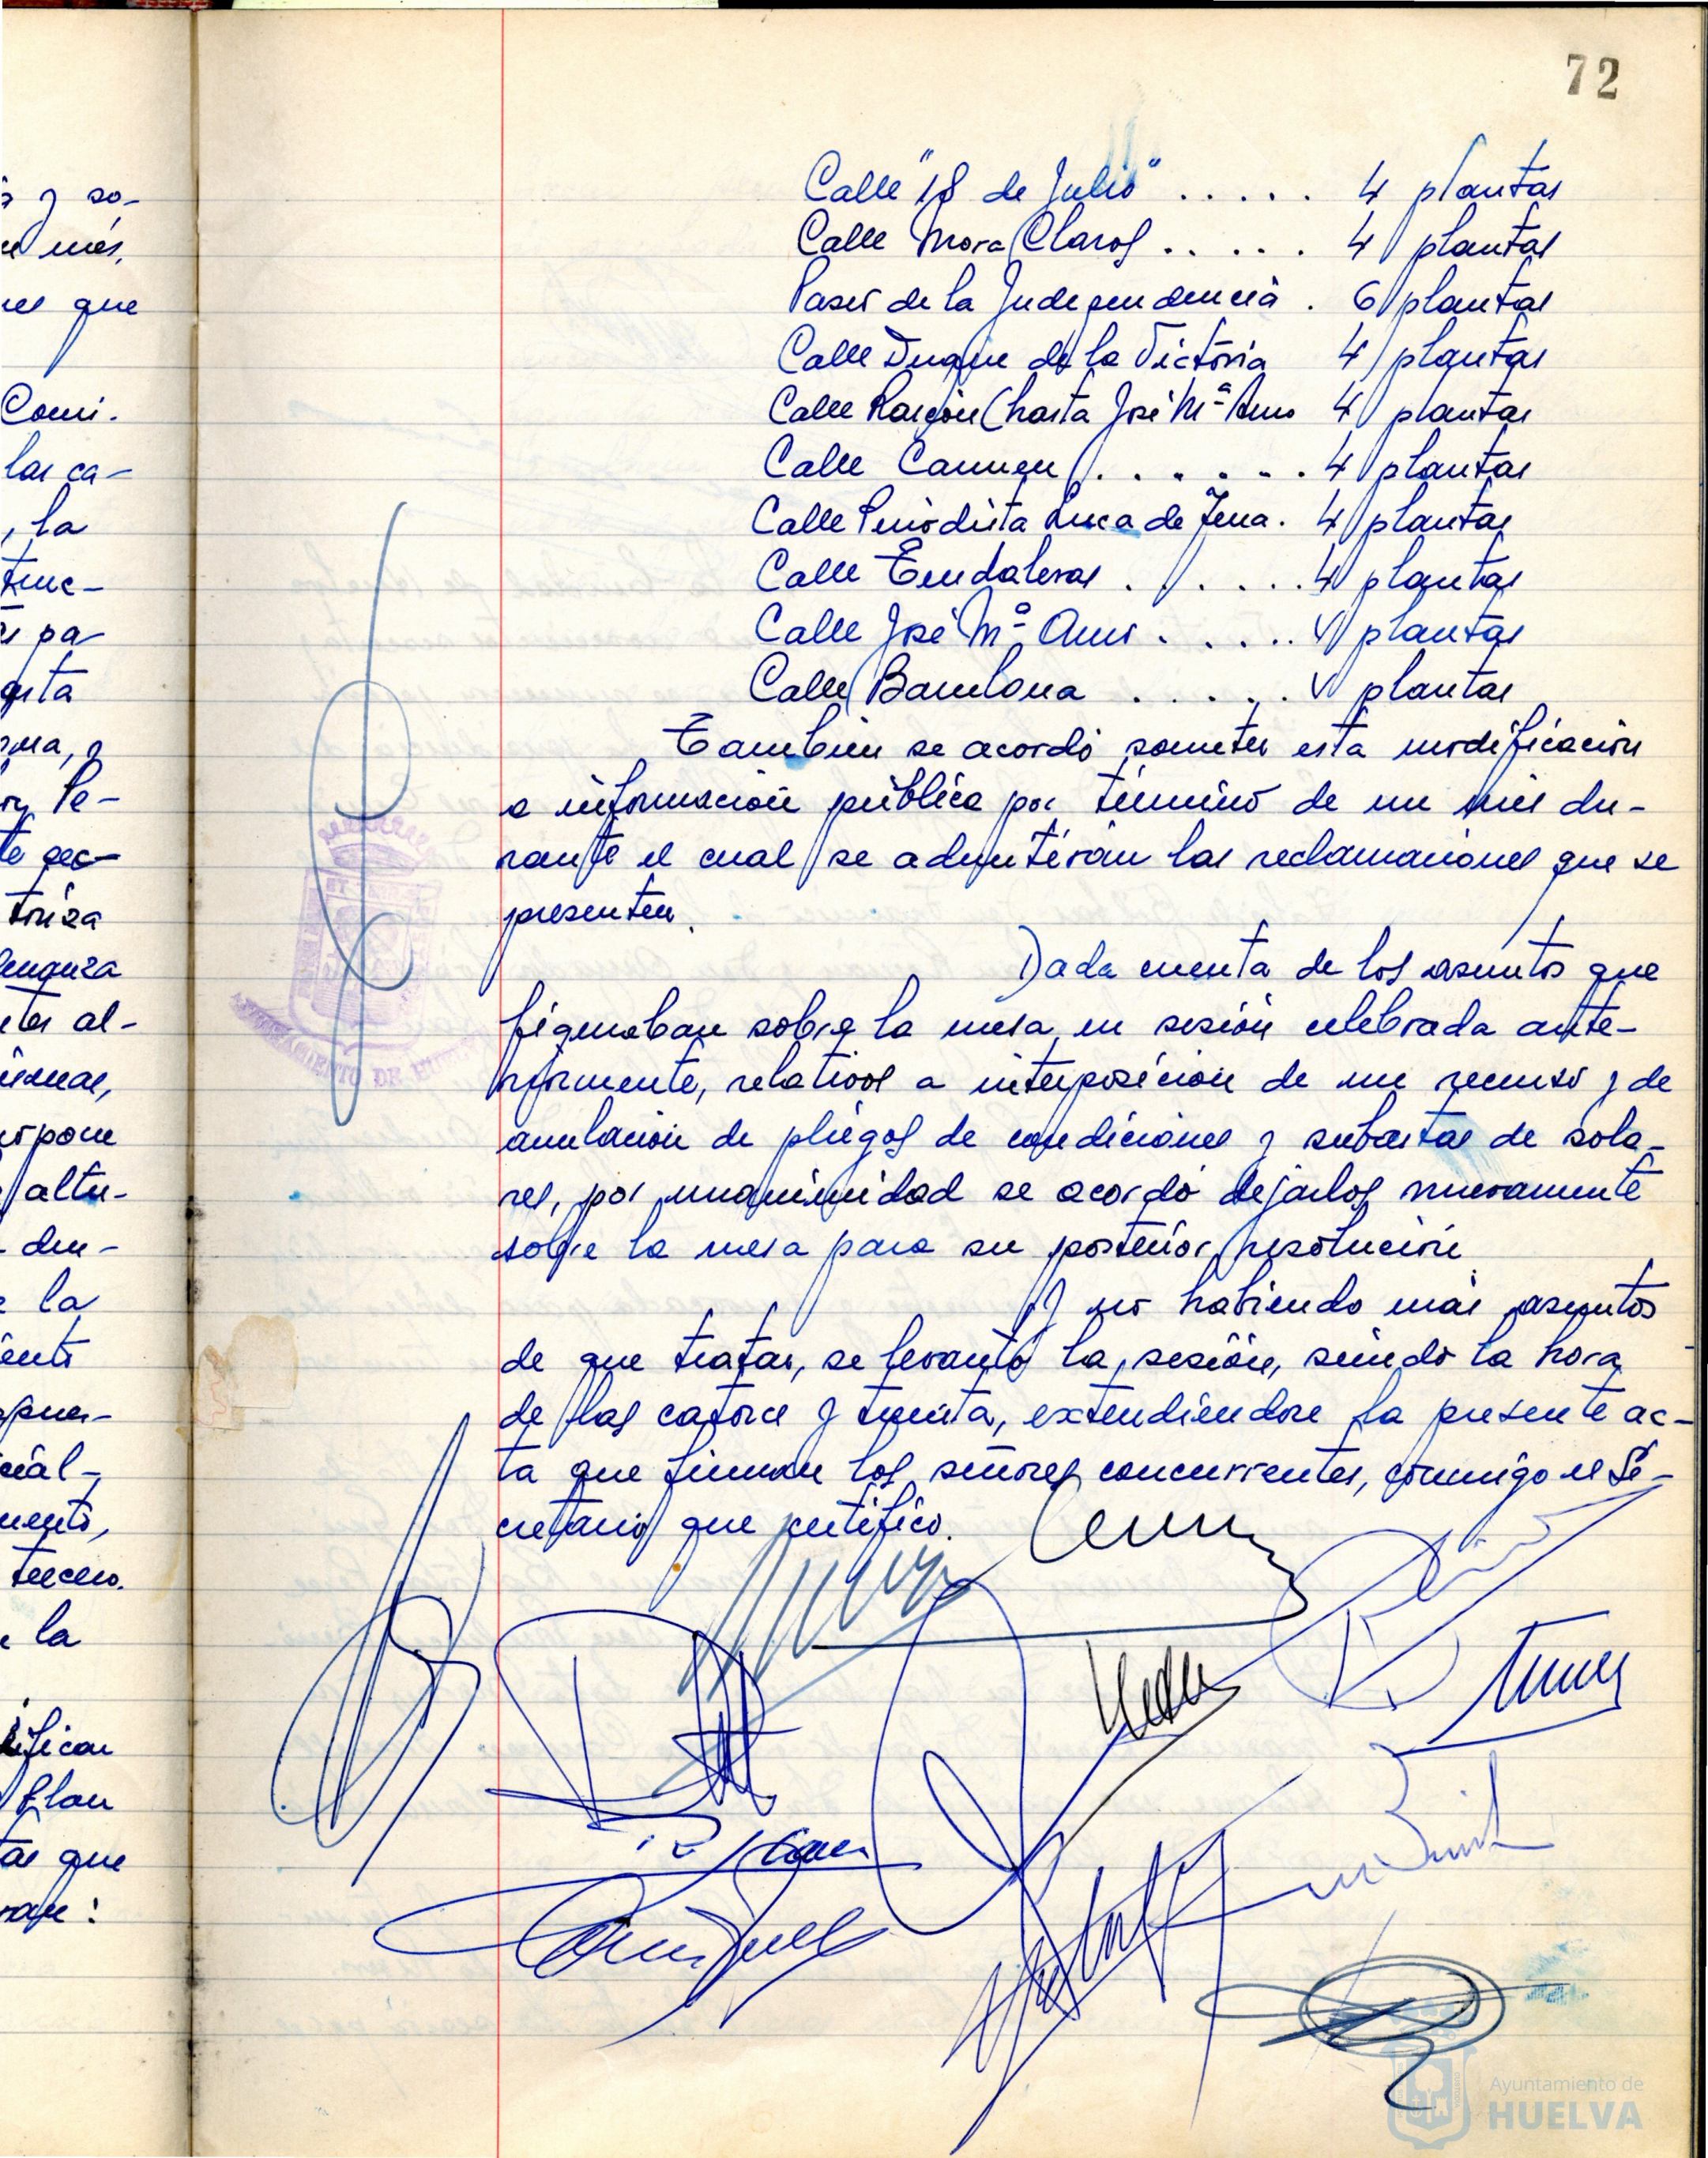 72
s y so-
u més,
res que
Comi-
las ca-
, la
truc-
s pa-
esta
y
on Pe-
te sec-
toriza
denanza
al-
pone
altu-
- du-
e la
iento
cial-
mento,
tercero.
e la
dificar
Plan
tas que
ran:
Calle "18 de Julio" ..... 4 plantas
Calle Mora Claros ..... 4 plantas
Paseo de la Independencia . 6 plantas
Calle Duque de la Victoria 4 plantas
Calle Rascón (hasta José Mª Amo 4 plantas
Calle Carmen ....... 4 plantas
Calle Periodista Luca de Tena. 4 plantas
Calle Tendaleras ..... 4 plantas
Calle José Mª Amo ..... 4 plantas
Calle Barcelona ..... 4 plantas
Tambien se acordó someter esta modificación
a información pública por término de un mes du-
rante el cual se admitirán las reclamaciones que se
presenten.
Dada cuenta de los asuntos que
figuraban sobre la mesa en sesión celebrada ante-
riormente, relativos a interposición de un recurso y de
anulación de pliegos de condiciones y subastas de sola-
res, por unanimidad se acordó dejarlos nuevamente
sobre la mesa para su posterior resolución.
Y no habiendo más asuntos
de que tratar, se levantó la sesión, siendo la hora
de las catorce y treinta, extendiendose la presente ac-
ta que firman los señores concurrentes, conmigo el Se-
cretario que certifico.
AYUNTAMIENTO DE HUELVA
Ayuntamiento de
HUELVA